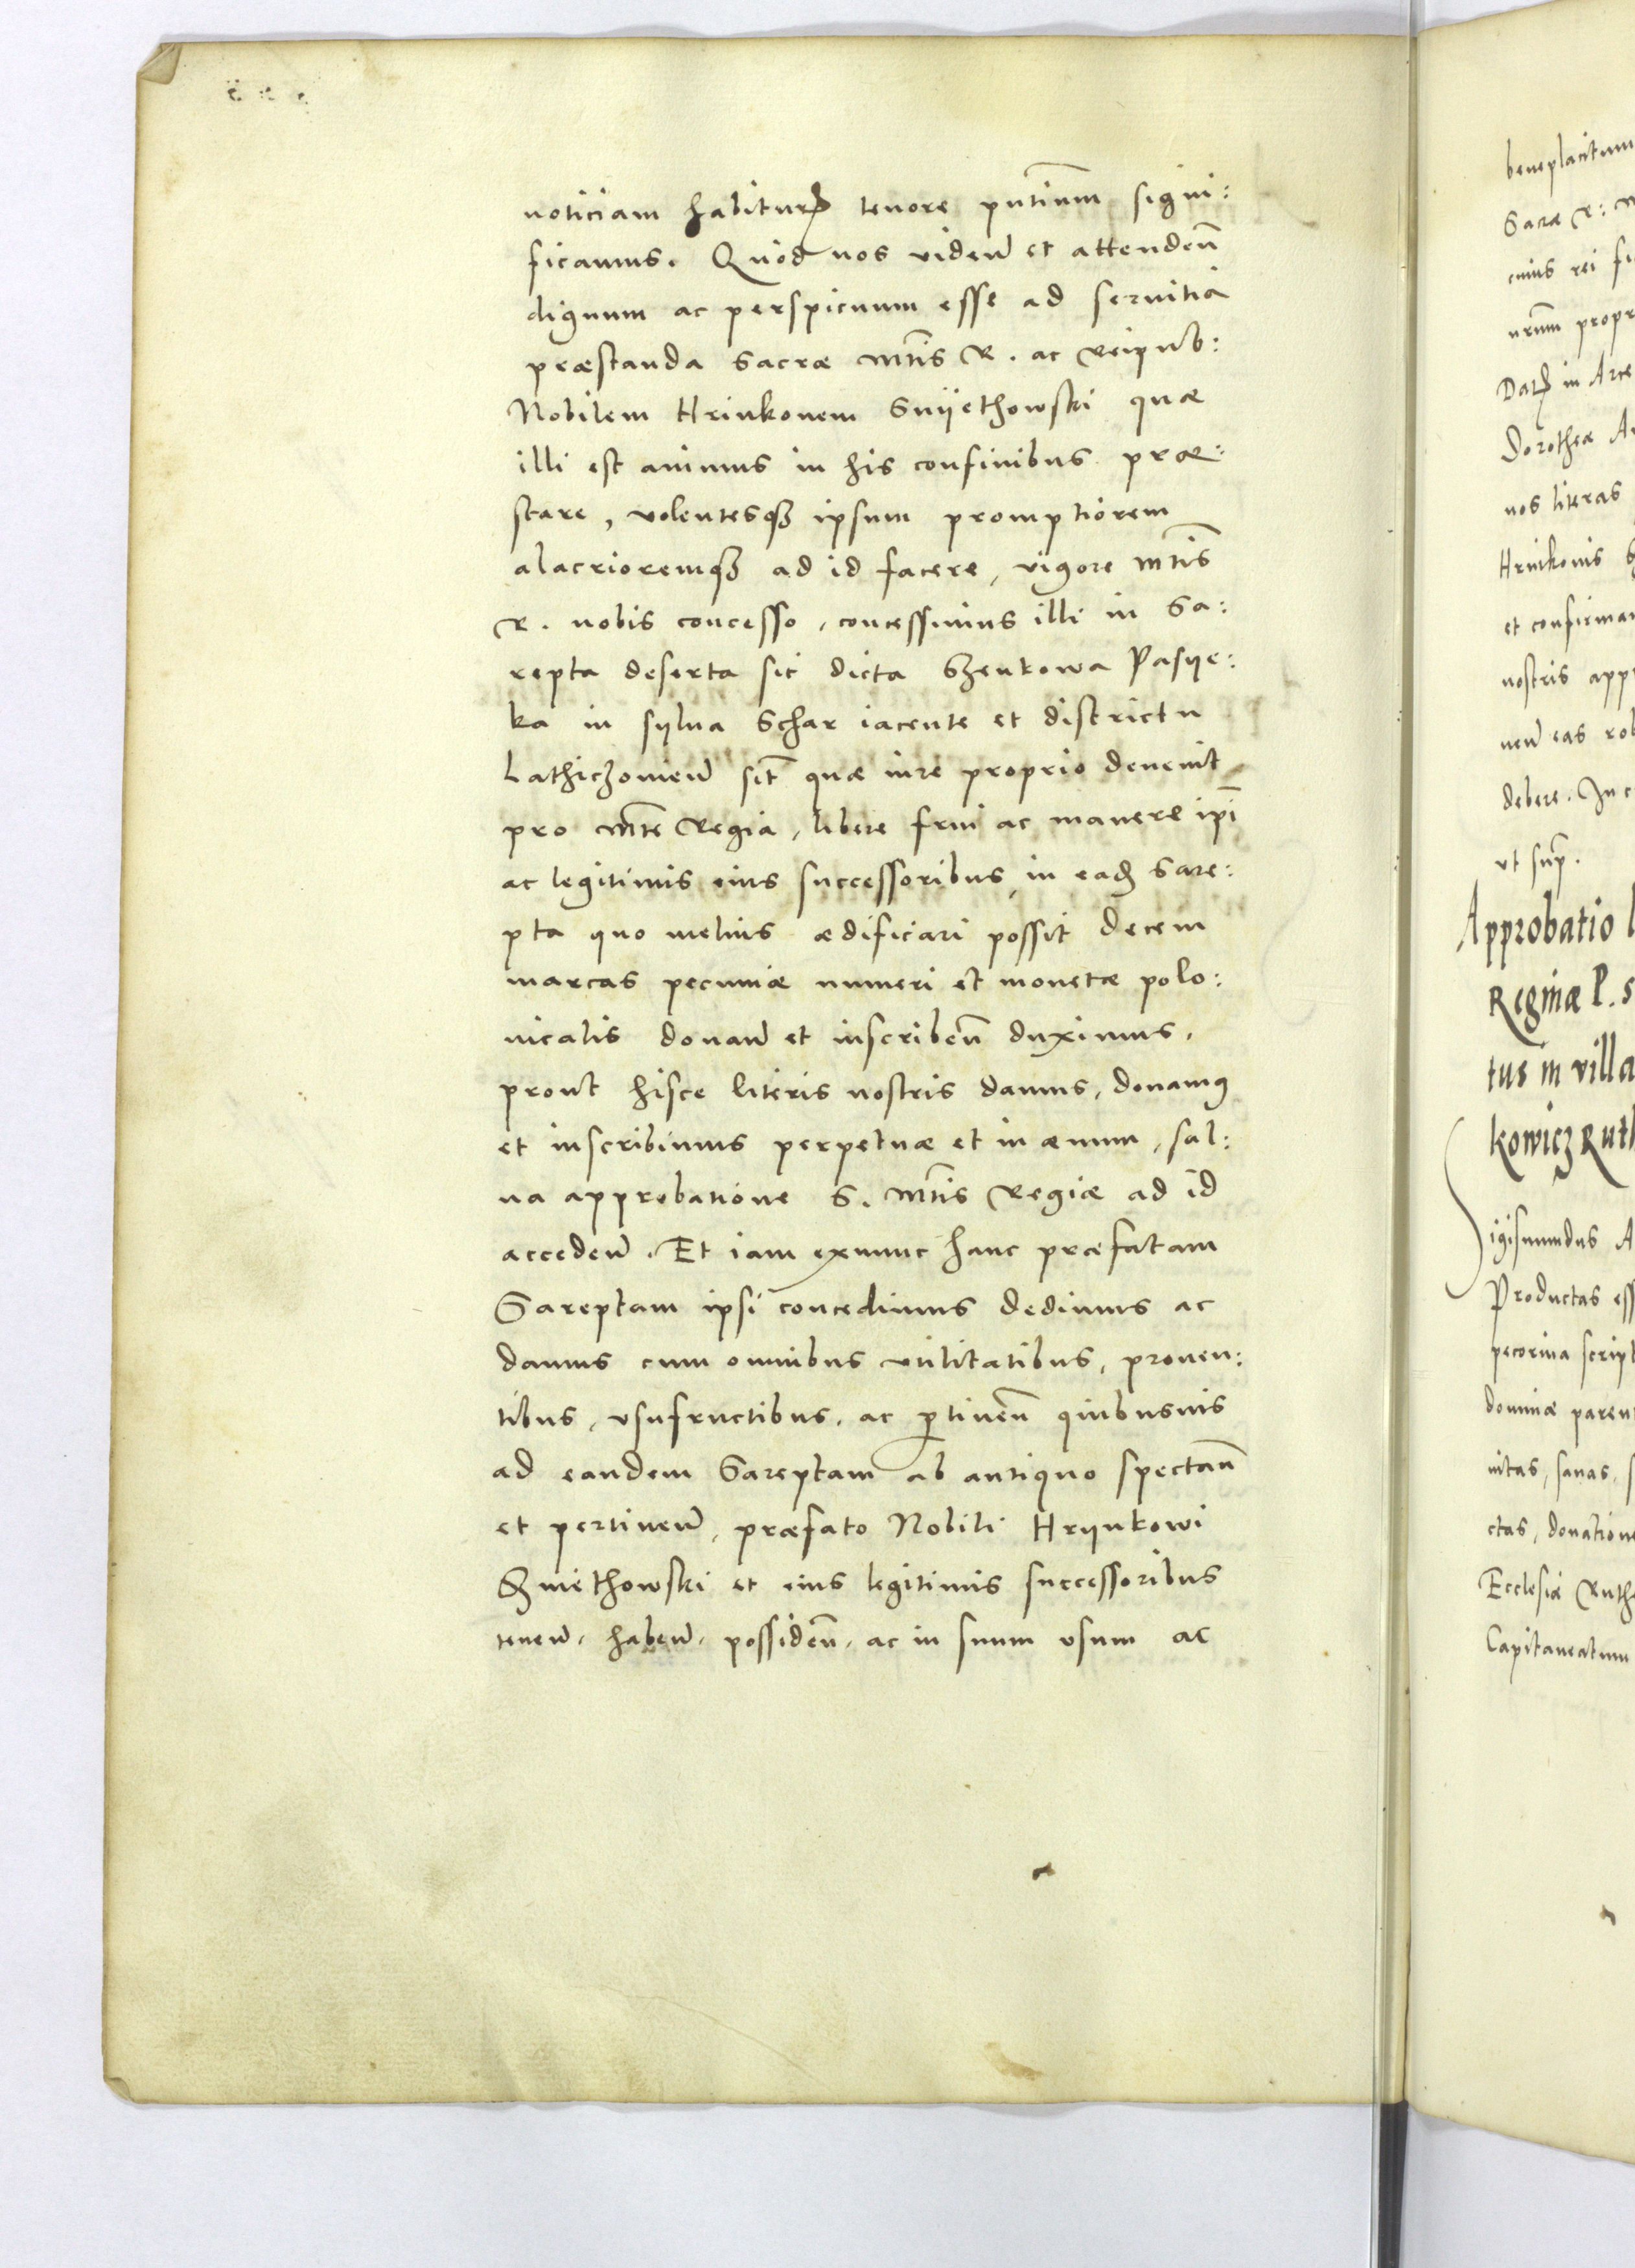 noticiam habiturꝭ tenore pn̄tium signi:
ficamus. Quod nos viden̄ et attenden̄
dignum ac perspicuum esse ad seruitia
præstanda Sacræ Mtīs R. ac Reipub:
Nobilem Hrinkonem Snÿethowski quæ
illi est animus in his confinibus præ:
stare, volentesqꝫ ipsum promptiorem
alacrioremqꝫ ad id facere, vigore Mtīs
R. nobis concesso, concessimus illi in Sa:
repta deserta sic dicta Szenkowa Pasÿe:
ka in sylua Schar iacente et districtu
Lathiczouien̄ sit̄ quæ iure proprio deuenit
pro Mtē Regia, libere frui ac manere ipī
ac legitimis eius successoribus, in eadꝫ Sare:
pta quo melius ædificari possit decem
marcas pecuniæ numeri et monetæ polo:
nicalis donan̄ et inscriben̄ duximus,
prout hisce literis nostris damus, donamꝰ
et inscribimus perpetuæ et in æuum, sal:
ua approbatione S. Mtīs Regiæ ad id
acceden̄. Et iam exnunc hanc præfatam
Sareptam ipsi concedimus dedimus ac
damus cum omnibus vtilitatibus, prouen:
tibus, vsufructibus, ac ꝑtinen̄ quibusuis
ad eandem Sareptam ab antiquo spectan̄
et pertinen̄, præfato Nobili Hrÿnkowi
Szniethowski et eius legitimis successoribus
tenen̄, haben̄, possiden̄, ac in suum vsum ac
beneplacitum
Sacræ R:
cuius rei
nrūm propr
Datꝫ in Arce
Dorotheæ
nos literas
Hrinkonis
et confirman
nostris app
nen̄ eas rob
debere. In c
vt supꝫ.
Approbatio
Reginæ P. s
tus in villa
kowicz Ruth
Sigismundus A
Productas ess
pecorina script
dominæ paren
uitas, sanas,
ctas, donatione
Ecclesiæ Ruthe
Capitaneatum